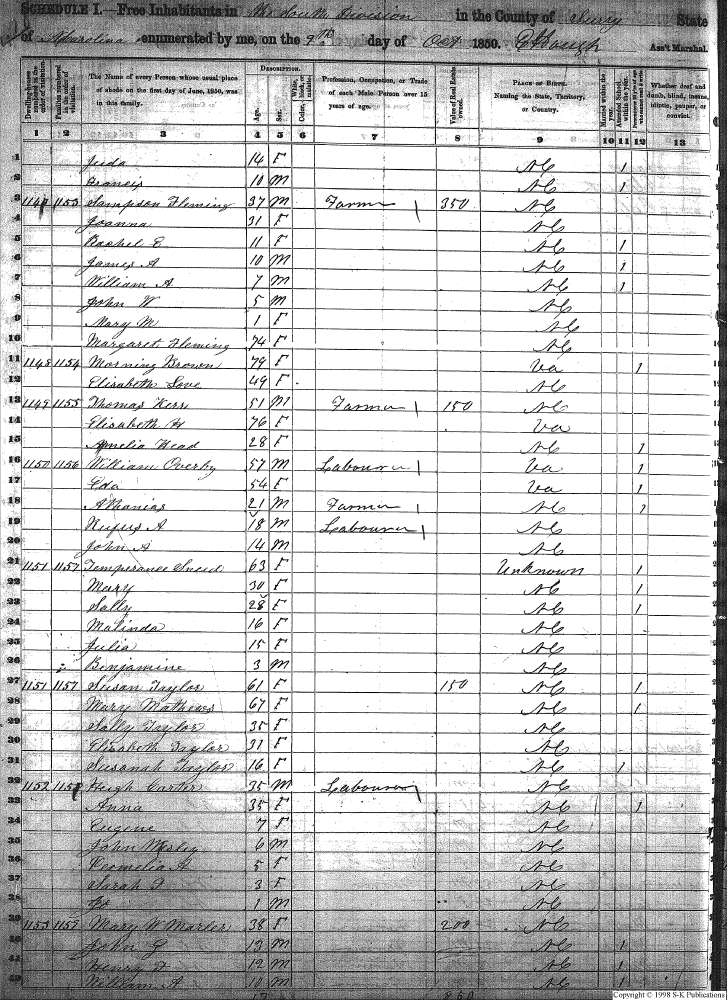 SCHEDULE I.—Free Inhabitants in the South Division in the County of Surry State
of N Carolina enumerated by me, on the 9th day of Oct 1850. Ass't Marshal.
DESCRIPTION.
Dwelling-houses numbered in the order of visitation.
Families numbered in the order of visitation.
The Name of every Person whose usual place of abode on the first day of June, 1850, was in this family.
Age.
Sex.
Color, White, black, or mulatto.
Profession, Occupation, or Trade of each Male Person over 15 years of age.
Value of Real Estate owned.
PLACE OF BIRTH. Naming the State, Territory, or Country.
Married within the year.
Attended School within the year.
Whether deaf and dumb, blind, insane, idiotic, pauper, or convict.
1 2 3 4 5 6 7 8 9 10 11 12 13
1 Juda 14 F NC 1
2 Francis 10 M NC 1
3 1153 Sampson Fleming 37 M Farmer 1 350 NC
4 Joanna 31 F NC
5 Rachel E 11 F NC 1
6 James A 10 M NC 1
7 William A 7 M NC 1
8 John W 5 M NC
9 Mary M 1 F NC
10 Margaret Fleming 74 F NC
11 1148 1154 Morning Brown 79 F Va 1
12 Elisabeth Love 49 F NC
13 1149 1155 Thomas Kerr 51 M Farmer 1 150 NC
14 Elisabeth H 76 F Va
15 Amelia Head 28 F NC 1
16 1150 1156 William Overby 57 M Labourer 1 Va 1
17 Eda 54 F Va 1
18 Athanias 21 M Farmer 1 NC 1
19 Rufus A 18 M Labourer 1 NC
20 John A 14 M NC
21 1151 1157 Temperance Sneed 63 F Unknown 1
22 Mary 30 F NC 1
23 Sally 28 F NC 1
24 Malinda 16 F NC
25 Julia 15 F NC
26 Benjamine 3 M NC
27 1151 1157 Susan Taylor 61 F 150 NC 1
28 Mary Mathews 67 F NC 1
29 Sally Taylor 35 F NC
30 Elisabeth Taylor 31 F NC
31 Susanah Taylor 16 F NC 1
32 1152 1158 Hugh Carter 35 M Labourer 1 NC
33 Anna 35 F NC 1
34 Eugene 7 F NC
35 John Wesley 6 M NC
36 5 F NC
37 Sarah 3 F NC
38 1 M NC
39 1153 1159 Mary W Marler 38 F 200 NC
40 John G 13 M NC 1
41 Henry 12 M NC 1
42 William A 10 M NC 1
Copyright © 1998 S-K Publications